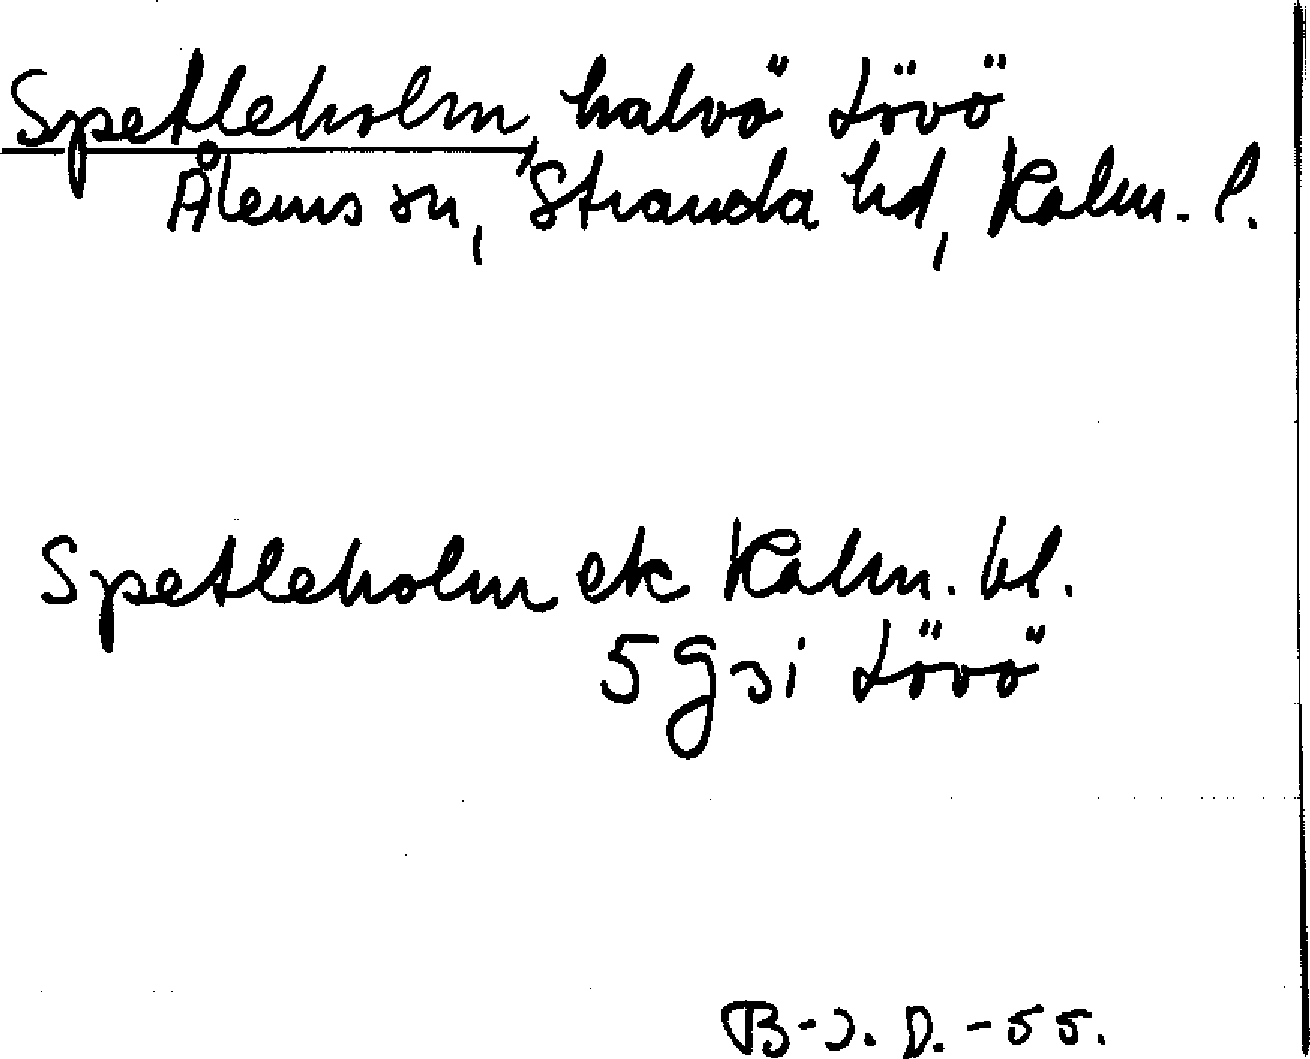 Spetleholm, halvö Lövö
Ålems sn, Stranda hd, Kalm. l.
Spetleholm ek Kalm. bl.
5 Lövö
B-J. D. -55.